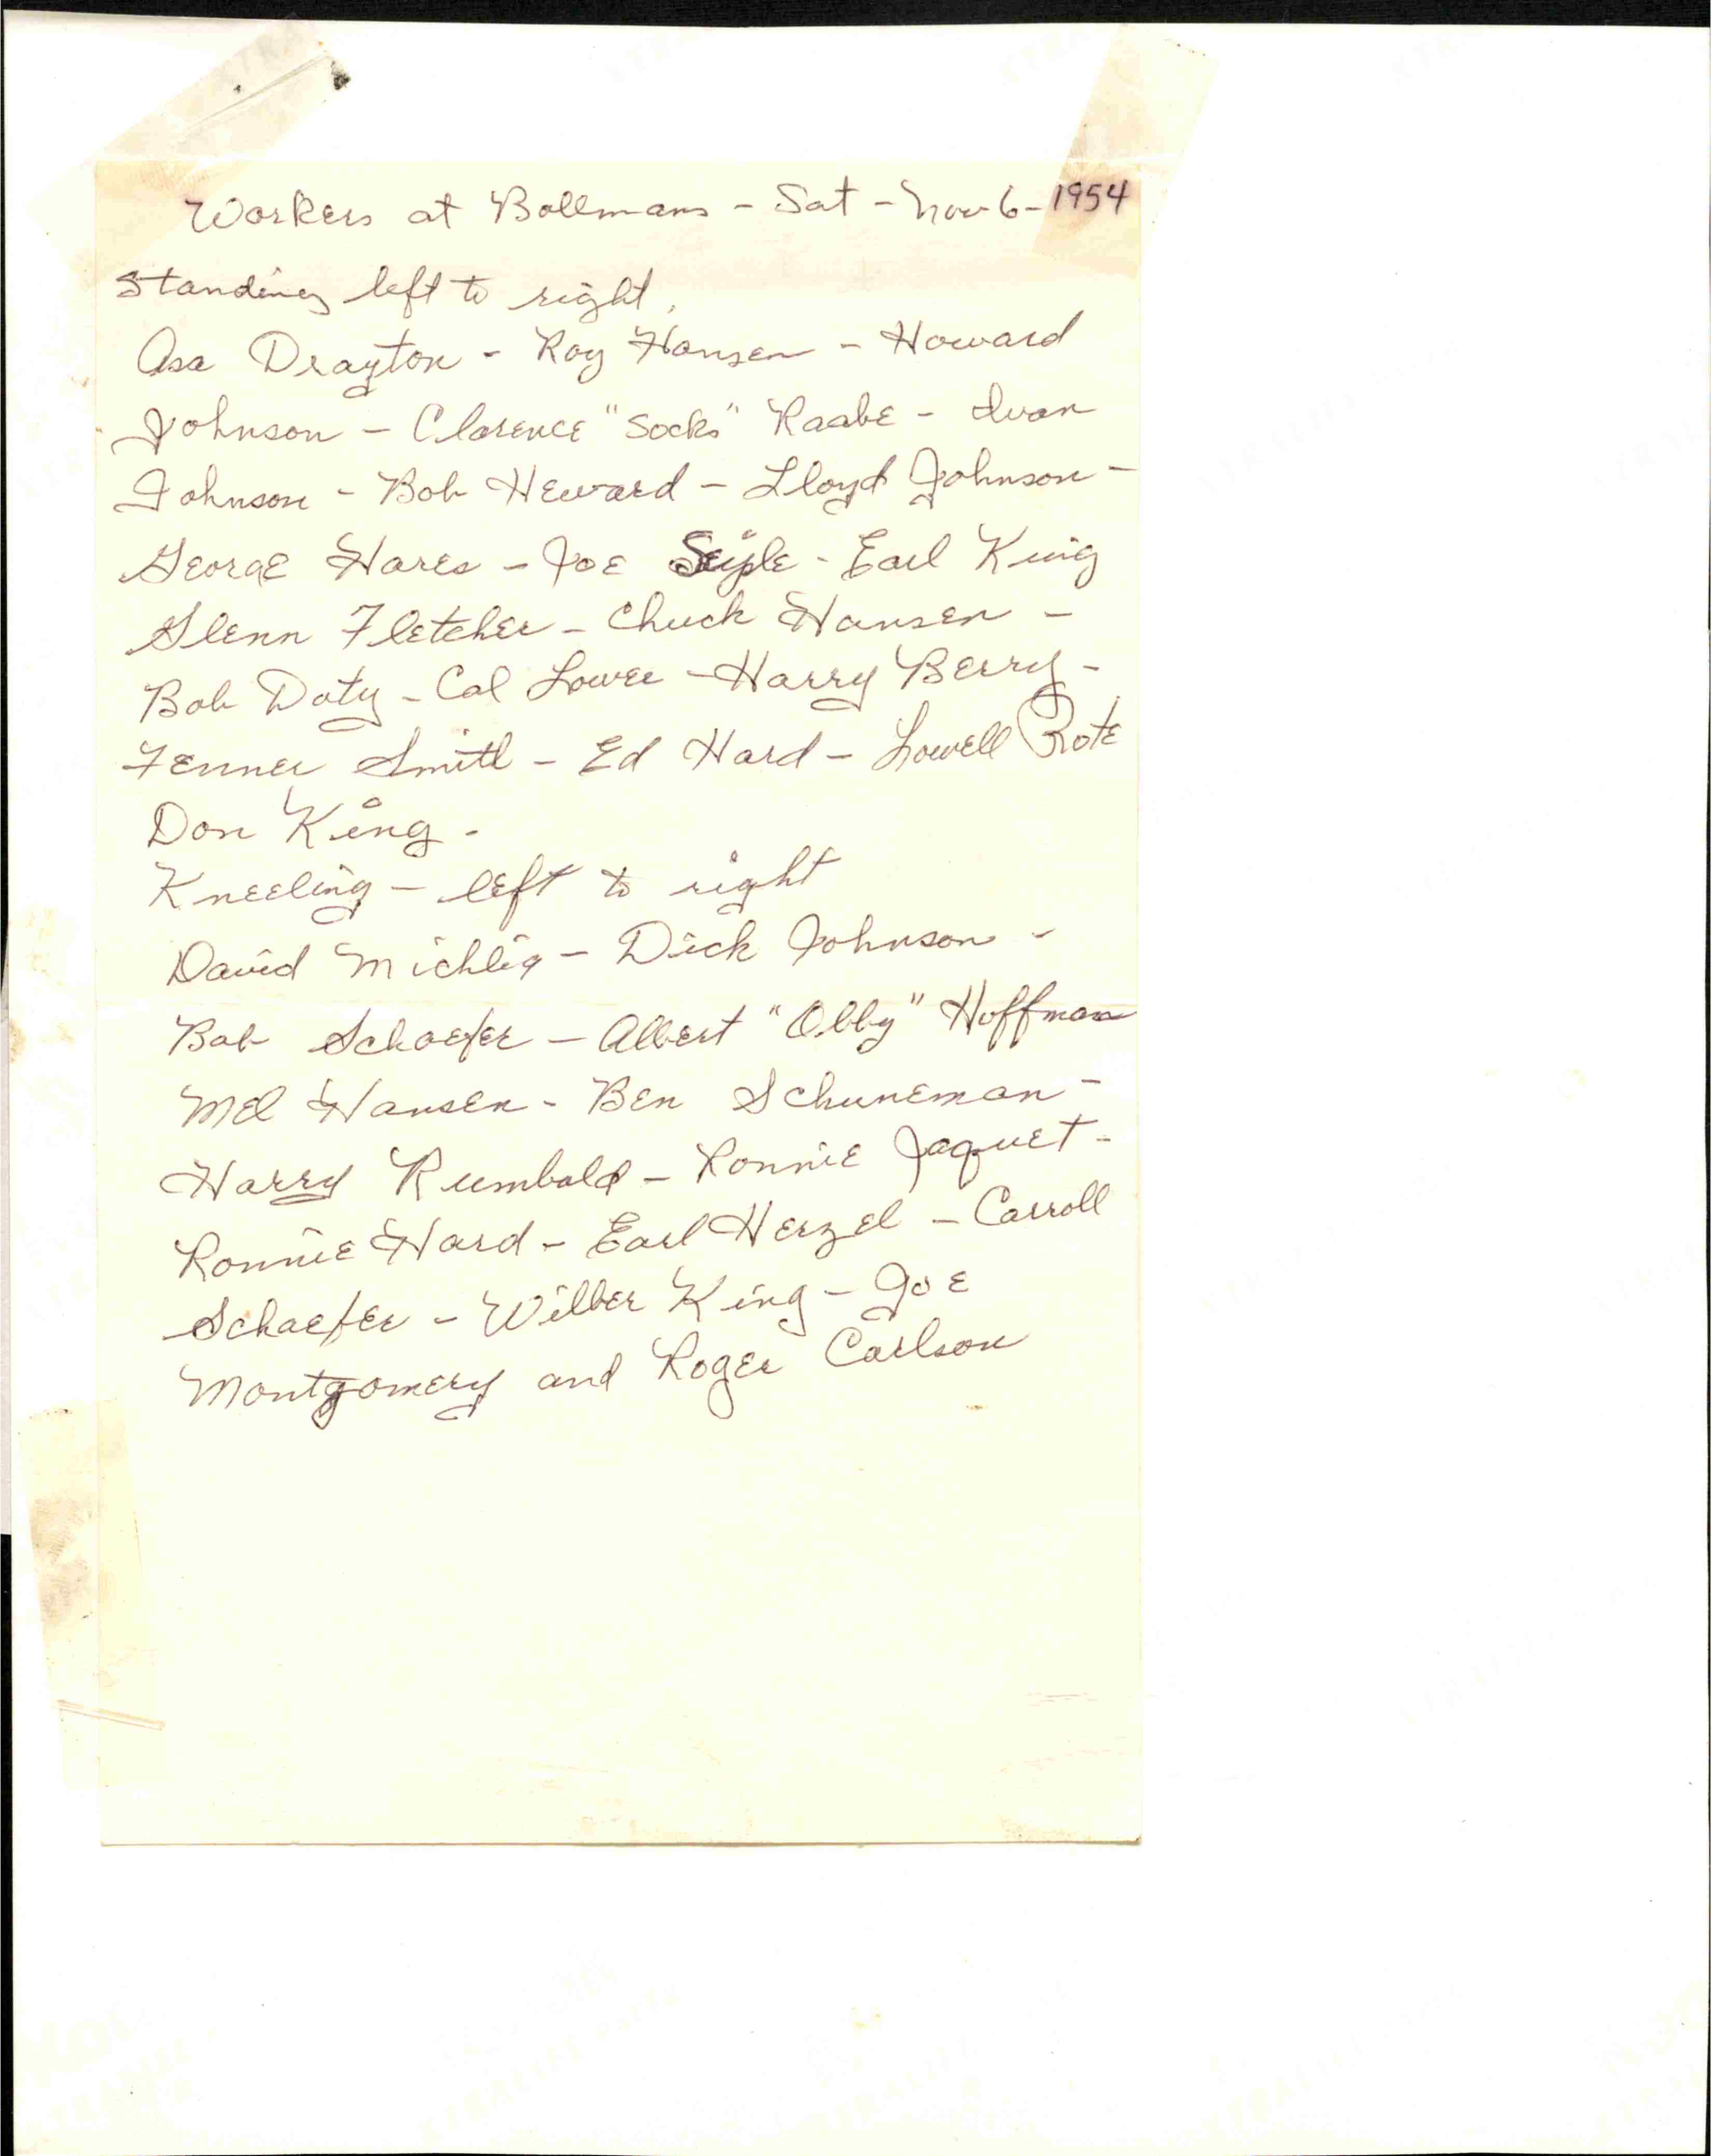 Workers at Bollmans - Sat - Nov 6 - 1954
Standing left to right.
Asa Drayton - Roy Hansen - Howard
Johnson - Clarence "Socks" Raabe - Ivan
Johnson - Bob Heward - Lloyd Johnson -
George Hares - Joe Seiple - Earl King
Glenn Fletcher - Chuck Hansen -
Bob Doty - Cal Lower - Harry Berry -
Fenner Smith - Ed Hard - Lowell Rote
Don King -
Kneeling - left to right
David Michlig - Dick Johnson -
Bob Schaefer - Albert "Obby" Hoffman
Mel Hansen - Ben Schuneman -
Harry Rumbold - Ronnie Jaquet -
Ronnie Hard - Earl Herzel - Carroll
Schaefer - Wilber King - Joe
Montgomery and Roger Carlson